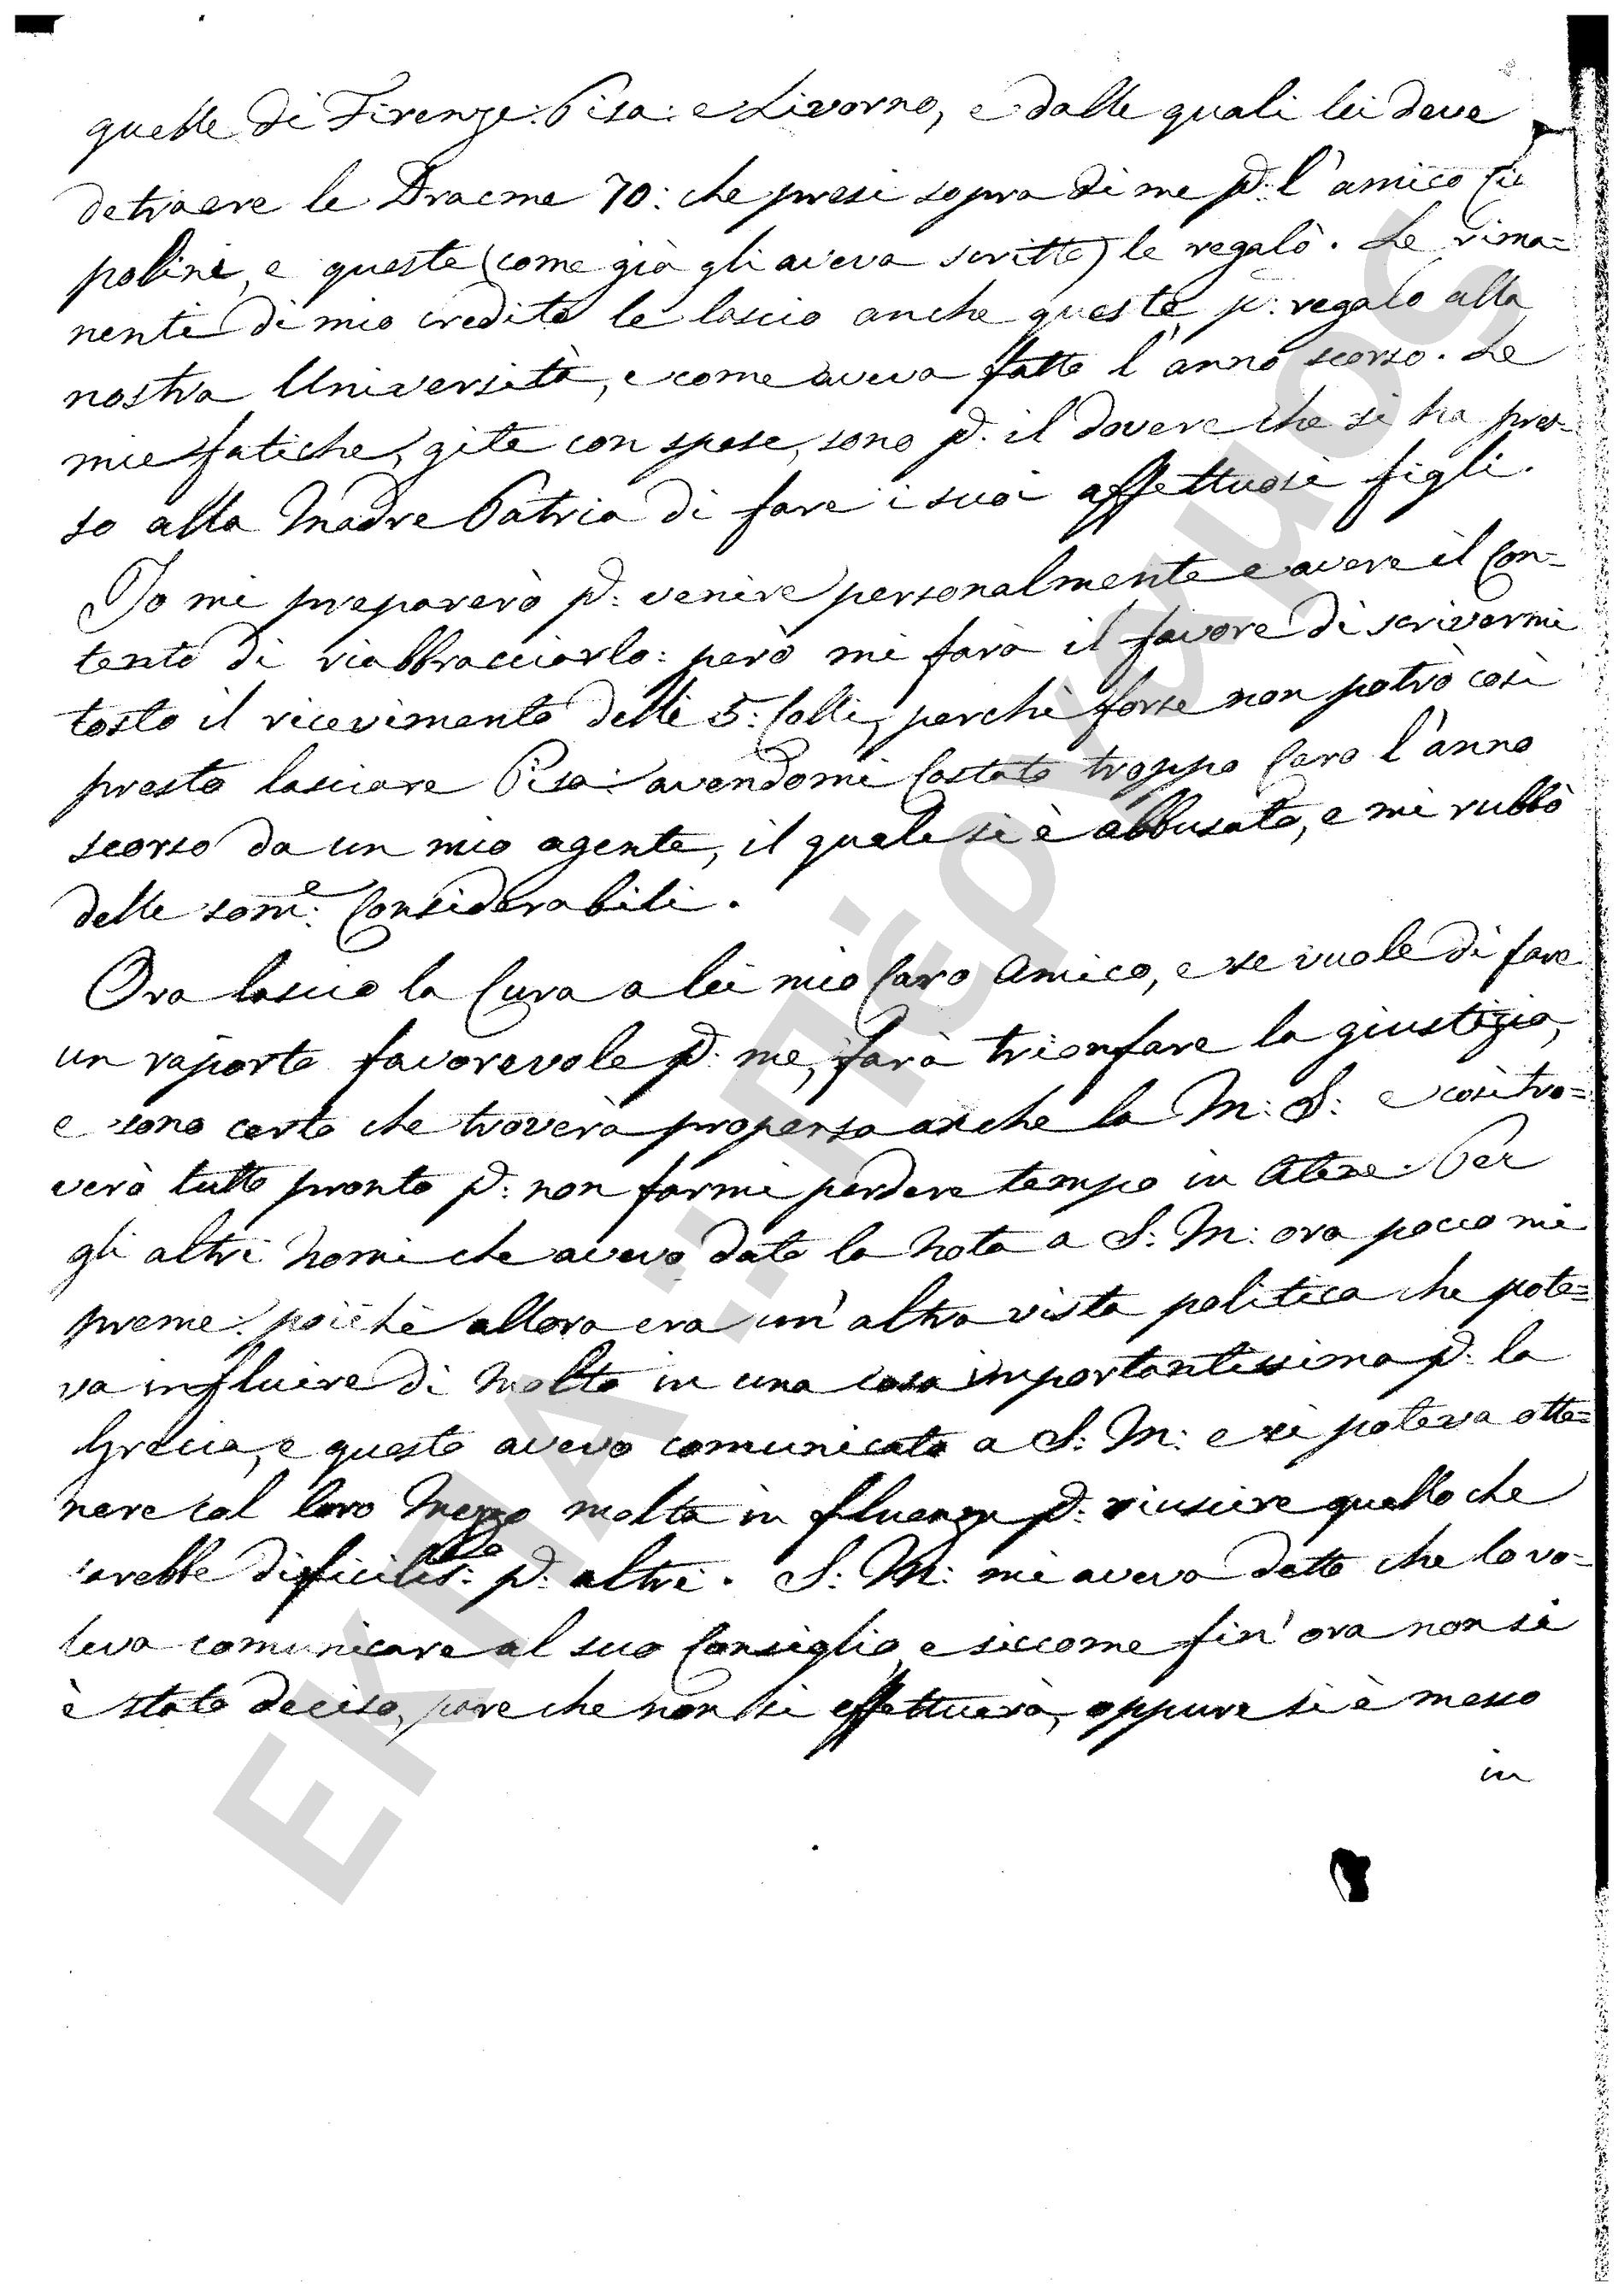 quelle di Firenze: Pisa: e Livorno, e dalle quali lei deve
detraere le Dracme 70: che presi sopra di me p: l'amico Ci
polini, e queste (come già gli aveva scritto) le regalò. Le rima=
nenti di mio credito le lascio anche queste p: regalo alla
nostra Università, e come aveva fatto l'anno scorso. Le
mie fatiche, gite con spese, sono p: il dovere che si ha pres=
so alla Madre Patria di fare i suoi affettuosi figli.
Io mi preparerò p: venire personalmente e avere il Con=
tento di riabbracciarlo: però mi farà il favore di scrivermi
tosto il ricevimento delli 5: Colli, perchè forse non potrò così
presto lasciare Pisa: avendomi Costato troppo Caro l'anno
scorso da un mio agente, il quale si è abbusato, e mi rubbò
delle som:e Considerabili.
Ora lascio la Cura a lei mio Caro Amico, e se vuole di fare
un raporto favorevole p: me, farà trionfare la giustizia,
e sono certo che troverà propensa anche la M: S: e così tro=
verà tutto pronto p: non farmi perdere tempo in Atene. Per
gli altri nomi che avevo dato la Nota a S: M: ora pocco mi
preme: poichè allora era un'altra vista politica che pote=
va influire di molto in una cosa importantissima p: la
Grecia, e questo avevo comunicato a S: M: e si poteva otte=
nere col loro mezzo molta influenza p: riuscire quello che
sarebbe dificilis: p: altri. S: M: mi aveva detto che lo vo=
leva comunicare al suo Consiglio, e siccome fin'ora non si
è stato deciso, pare che non si effettuerà, oppure si è messo
in
ΕΚΠΑ::Πέργαμος